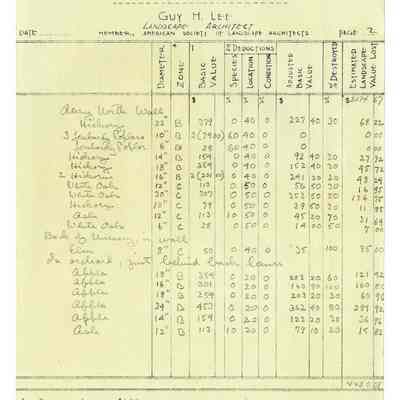 GUY H. LEE
LANDSCAPE ARCHITECT
DATE MEMBER, AMERICAN SOCIETY OF LANDSCAPE ARCHITECTS PAGE 2
DIAMETER ZONE BASIC VALUE % DEDUCTIONS SPECIES LOCATION CONDITION ADJUSTED BASIC VALUE % DESTROYED ESTIMATED LANDSCAPE VALUE LOST
$ % % % $ % $
Along North Wall
Hickory 22" B 379 0 40 0 227 40 30 68 22
3 Lombardy Poplars 10" B 60 40 0 0 0 00
Lombardy Poplar 6" B 28 60 40 0 0 0 00
Hickory 14" B 154 0 40 0 92 40 30 27 72
Hickory 18" B 254 0 40 0 152 40 30 45 72
2 Hickories 16" B 0 40 0 241 20 20
White Oak 12" C 113 0 50 0 56 50 30 16 95
White Oak C 0 50 0 50
Hickory 10" C 0 50 0 50 30 11
Ash 12" C 113 10 50 0 45 20 70 31
White Oak 6" C 28 0 50 0 14 00 50 7 00
Back by Nursery in wall
8" B 50 0 40 0 35 100 35 00
In orchard, just behind back lawn
Apple 18" B 254 0 20 0 203 20 60 121 92
Apple 16" B 201 0 20 0 160 80 100 160 80
Apple 18" B 254 0 20 0 203 20 30 60 96
Apple 24" B 0 20 0 362 40 80 289 92
Apple 14" B 154 0 20 0 123 20 30 36 96
Ash 12" B 113 10 20 0 79 10 20 15 82